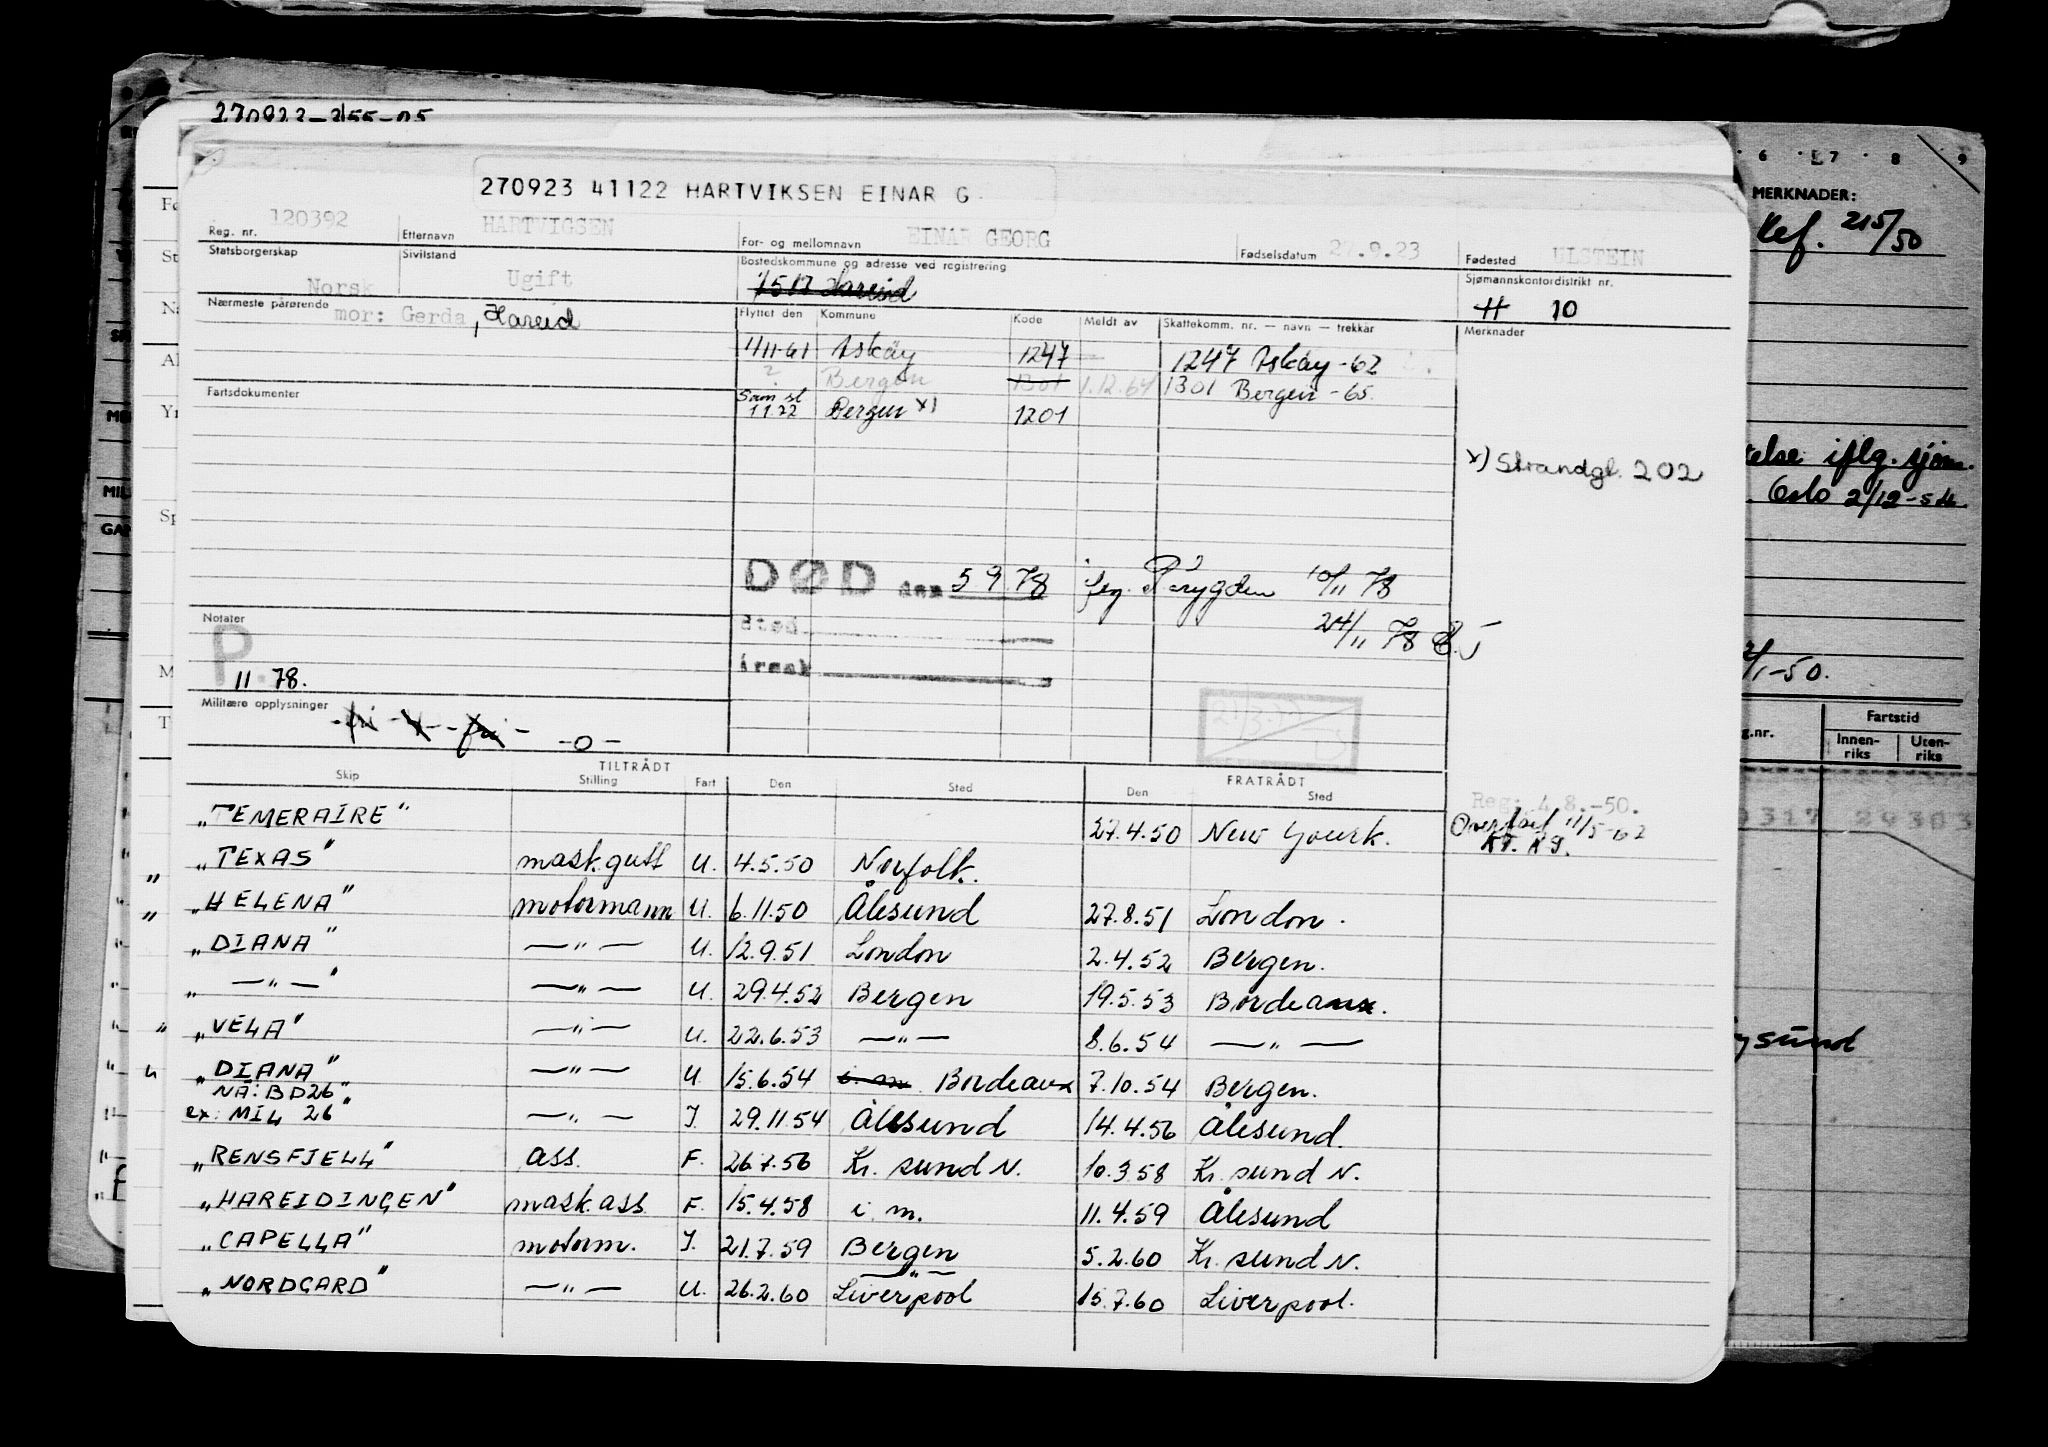 270923 41122 HARTVIKSEN EINAR G
Reg. nr. 120392 Etternavn HARTVIGSEN For- og mellomnavn EINAR GEORG Fødselsdatum 27.9.23 Fødested ULSTEIN
Statsborgerskap Norsk Sivilstand Ugift Bostedskommune og adresse ved registrering 1517 Hareid Sjømannskontordistrikt nr. 11 10
Nærmeste pårørende mor: Gerda, Hareid Flyttet den Kommune Kode Meldt av Skattekomm. nr. — navn — trekkår Merknader
1/11-61 Askøy 1247 1247 Askøy -62
? Bergen 1301 1.12.64 1301 Bergen -65.
Fartsdokumenter
11.22 Bergen x) 1201
x) Strandgt. 202
DØD den 5 9 78 10/11 78
sted
24/11 78
årsak
Notater
P
11. 78.
Militære opplysninger -fri - - fri - -o-
TILTRÅDT FRATRÅDT
Skip Stilling Fart Den Sted Den Sted
Reg: 4.8.-50.
Overført 11/5-62
„TEMERAIRE" 27.4.50 New Yourk.
„TEXAS" mask.gutt U. 4.5.50 Norfolk.
„ „HELENA" motormann U. 6.11.50 Ålesund 27.8.51 London.
„ „DIANA" —"— U. 12.9.51 London 2.4.52 Bergen.
„ —"— " —"— U. 29.4.52 Bergen 19.5.53 Bordeaux.
„VELA" —"— U. 22.6.53 —"— 8.6.54 —"—
„DIANA" —"— U. 15.6.54 Bordeaux 7.10.54 Bergen.
NÅ: BD26"
ex: MIL 26" —"— I. 29.11.54 Ålesund 14.4.56 Ålesund.
„RENSFJELL" ass. F. 26.7.56 Kr. sund N. 10.3.58 Kr. sund N.
„HAREIDINGEN" mask.ass F. 15.4.58 i. m. 11.4.59 Ålesund
„CAPELLA" motorm. I. 21.7.59 Bergen 5.2.60 Kr. sund N.
„NORDGARD" —"— U. 26.2.60 —"— Liverpool 15.7.60 Liverpool.
6 7 8 9
MERKNADER:
215/50
iflg. sjøm.
Oslo 2/12-54
1-50.
Fartstid
g.nr. Innen-riks Uten-riks
0317 29303
ysund